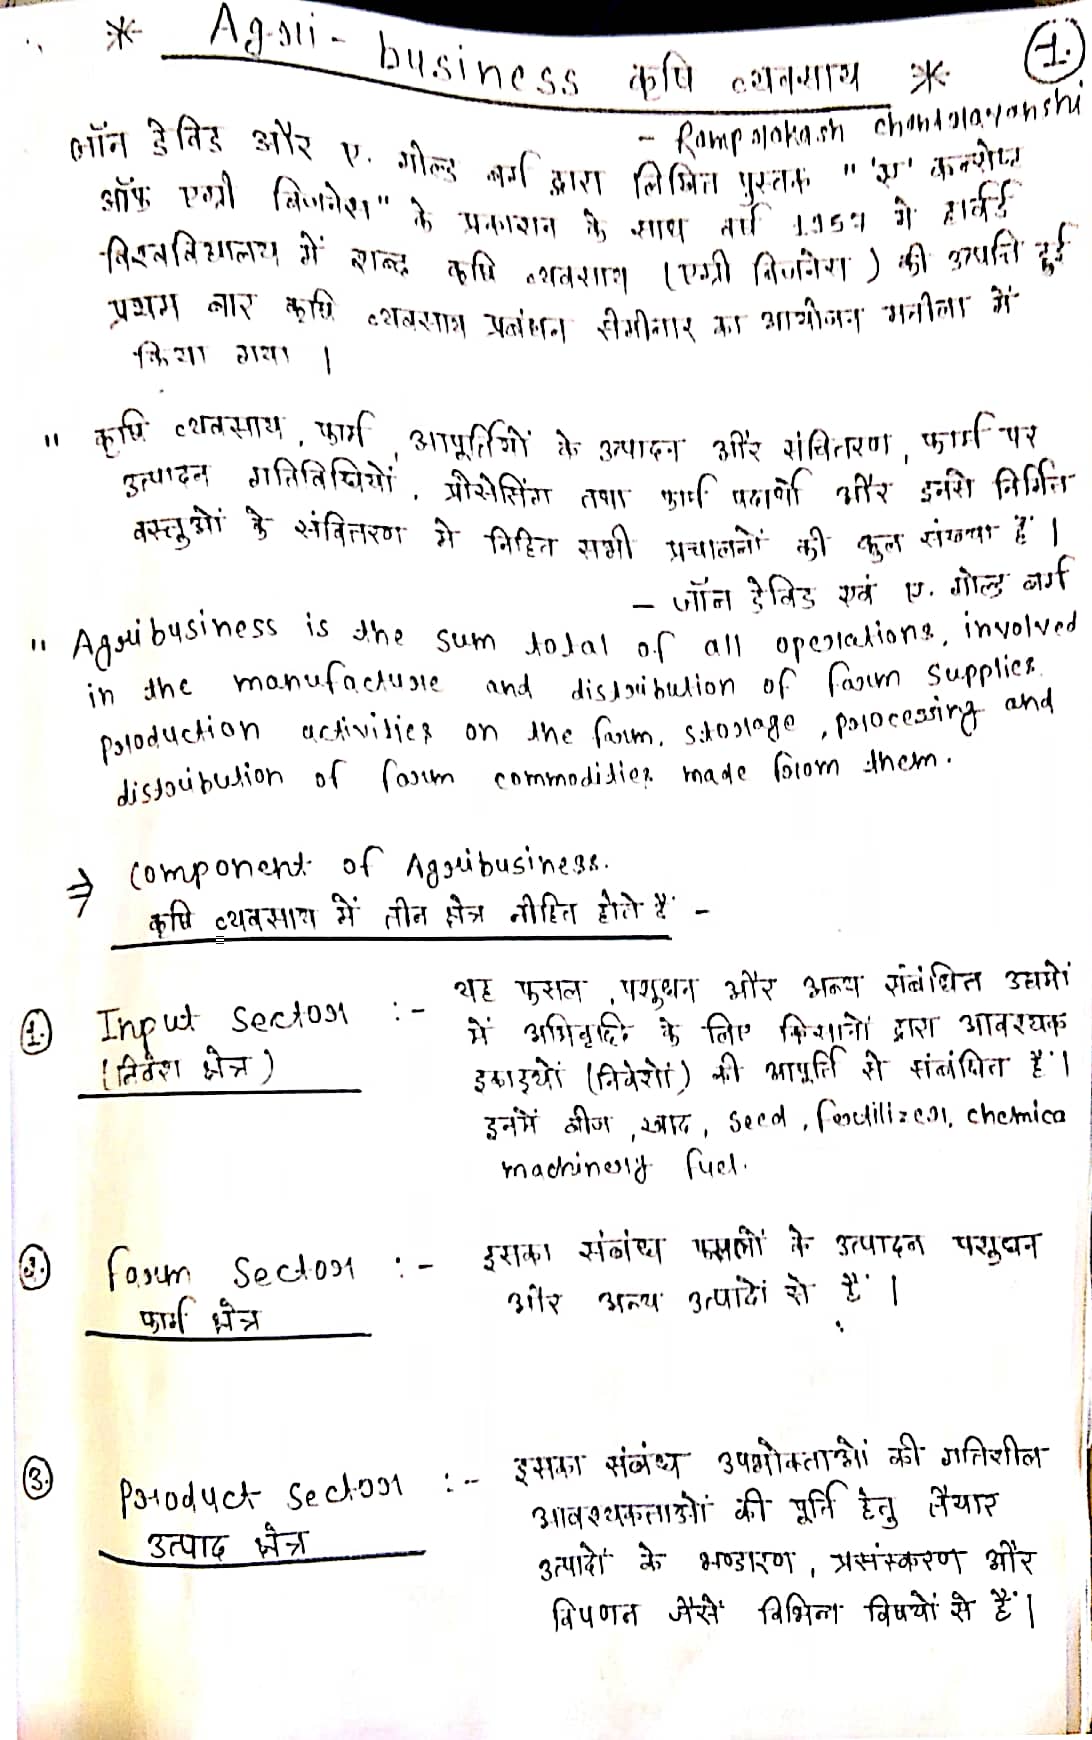 * Agri-business कृषि व्यवसाय *
1.
- Ramprakash chandrayanshi
जॉन डेविड और ए. गोल्ड बर्ग द्वारा लिखित पुस्तक "'अ' कन्सेप्ट
ऑफ एग्री बिजनेस" के प्रकाशन के साथ वर्ष 1957 में हार्वर्ड
विश्वविद्यालय में शब्द कृषि व्यवसाय (एग्री बिजनेस) की उत्पत्ति हुई
प्रथम बार कृषि व्यवसाय प्रबंधन सेमीनार का आयोजन मनीला में
किया गया ।
" कृषि व्यवसाय, फार्म, आपूर्तियों के उत्पादन और संवितरण, फार्म पर
उत्पादन गतिविधियों, प्रोसेसिंग तथा फार्म पदार्थो और इनसे निर्मित
वस्तुओं के संवितरण में निहित सभी प्रचालनों की कुल संख्या हैं ।
- जॉन डेविड एवं ए. गोल्ड बर्ग
" Agribusiness is the sum total of all operations, involved
in the manufacture and distribution of farm supplies
production activities on the farm, storage, processing and
distribution of farm commodities made from them.
⇒ component of Agribusiness.
कृषि व्यवसाय में तीन क्षेत्र नीहित होते हैं -
1. Input sector :- यह फसल, पशुधन और अन्य संबंधित उद्यमों
(निवेश क्षेत्र) में अभिवृद्धि के लिए किसानों द्वारा आवश्यक
इकाइयों (निवेशों) की आपूर्ति से संबंधित हैं ।
इनमें बीज, खाद, seed, fertilizer, chemica
machinery fuel.
2. farm sector :- इसका संबंध फसलों के उत्पादन पशुधन
फार्म क्षेत्र और अन्य उत्पादों से हैं ।
3. product sector :- इसका संबंध उपभोक्ताओं की गतिशील
उत्पाद क्षेत्र आवश्यकताओं की पूर्ति हेतु तैयार
उत्पादों के भण्डारण, प्रसंस्करण और
विपणन जैसे विभिन्न विषयों से हैं ।